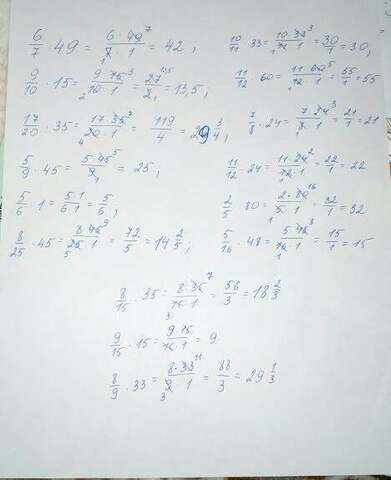 6/7 · 49 = 6·49⁷/7·1 = 42; 10/11 · 33 = 10·33³/11·1 = 30/1 = 30;
9/10 · 15 = 9·15³/10·1 = 27/2 = 13,5; 11/12 · 60 = 11·60⁵/12·1 = 55/1 = 55
17/20 · 35 = 17·35/20·1 = 119/4 = 29 3/4; 7/8 · 24 = 7·24³/8·1 = 21/1 = 21
5/9 · 45 = 5·45⁵/9·1 = 25; 11/12 · 24 = 11·24²/12·1 = 22/1 = 22
5/6 · 1 = 5·1/6·1 = 5/6; 2/5 · 80 = 2·80¹⁶/5·1 = 32/1 = 32
8/25 · 45 = 8·45⁹/25·1 = 72/5 = 14 2/5; 5/16 · 48 = 5·48³/16·1 = 15/1 = 15
8/15 · 35 = 8·35⁷/15·1 = 56/3 = 18 2/3
9/15 · 15 = 9·15/15·1 = 9
8/9 · 33 = 8·33¹¹/9·1 = 88/3 = 29 1/3